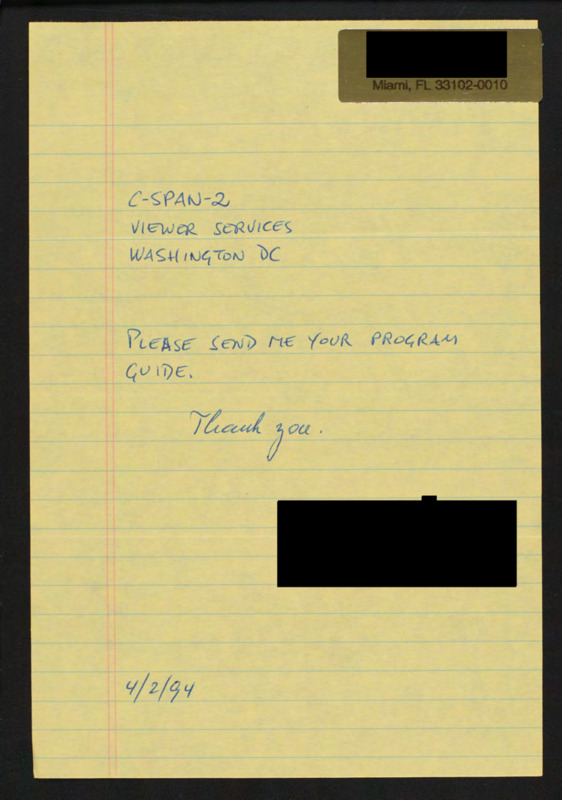 Miami, FL 33102-0010
C-SPAN-2
VIEWER SERVICES
WASHINGTON DC
PLEASE SEND ME YOUR PROGRAM
GUIDE.
Thank you.
4/2/94